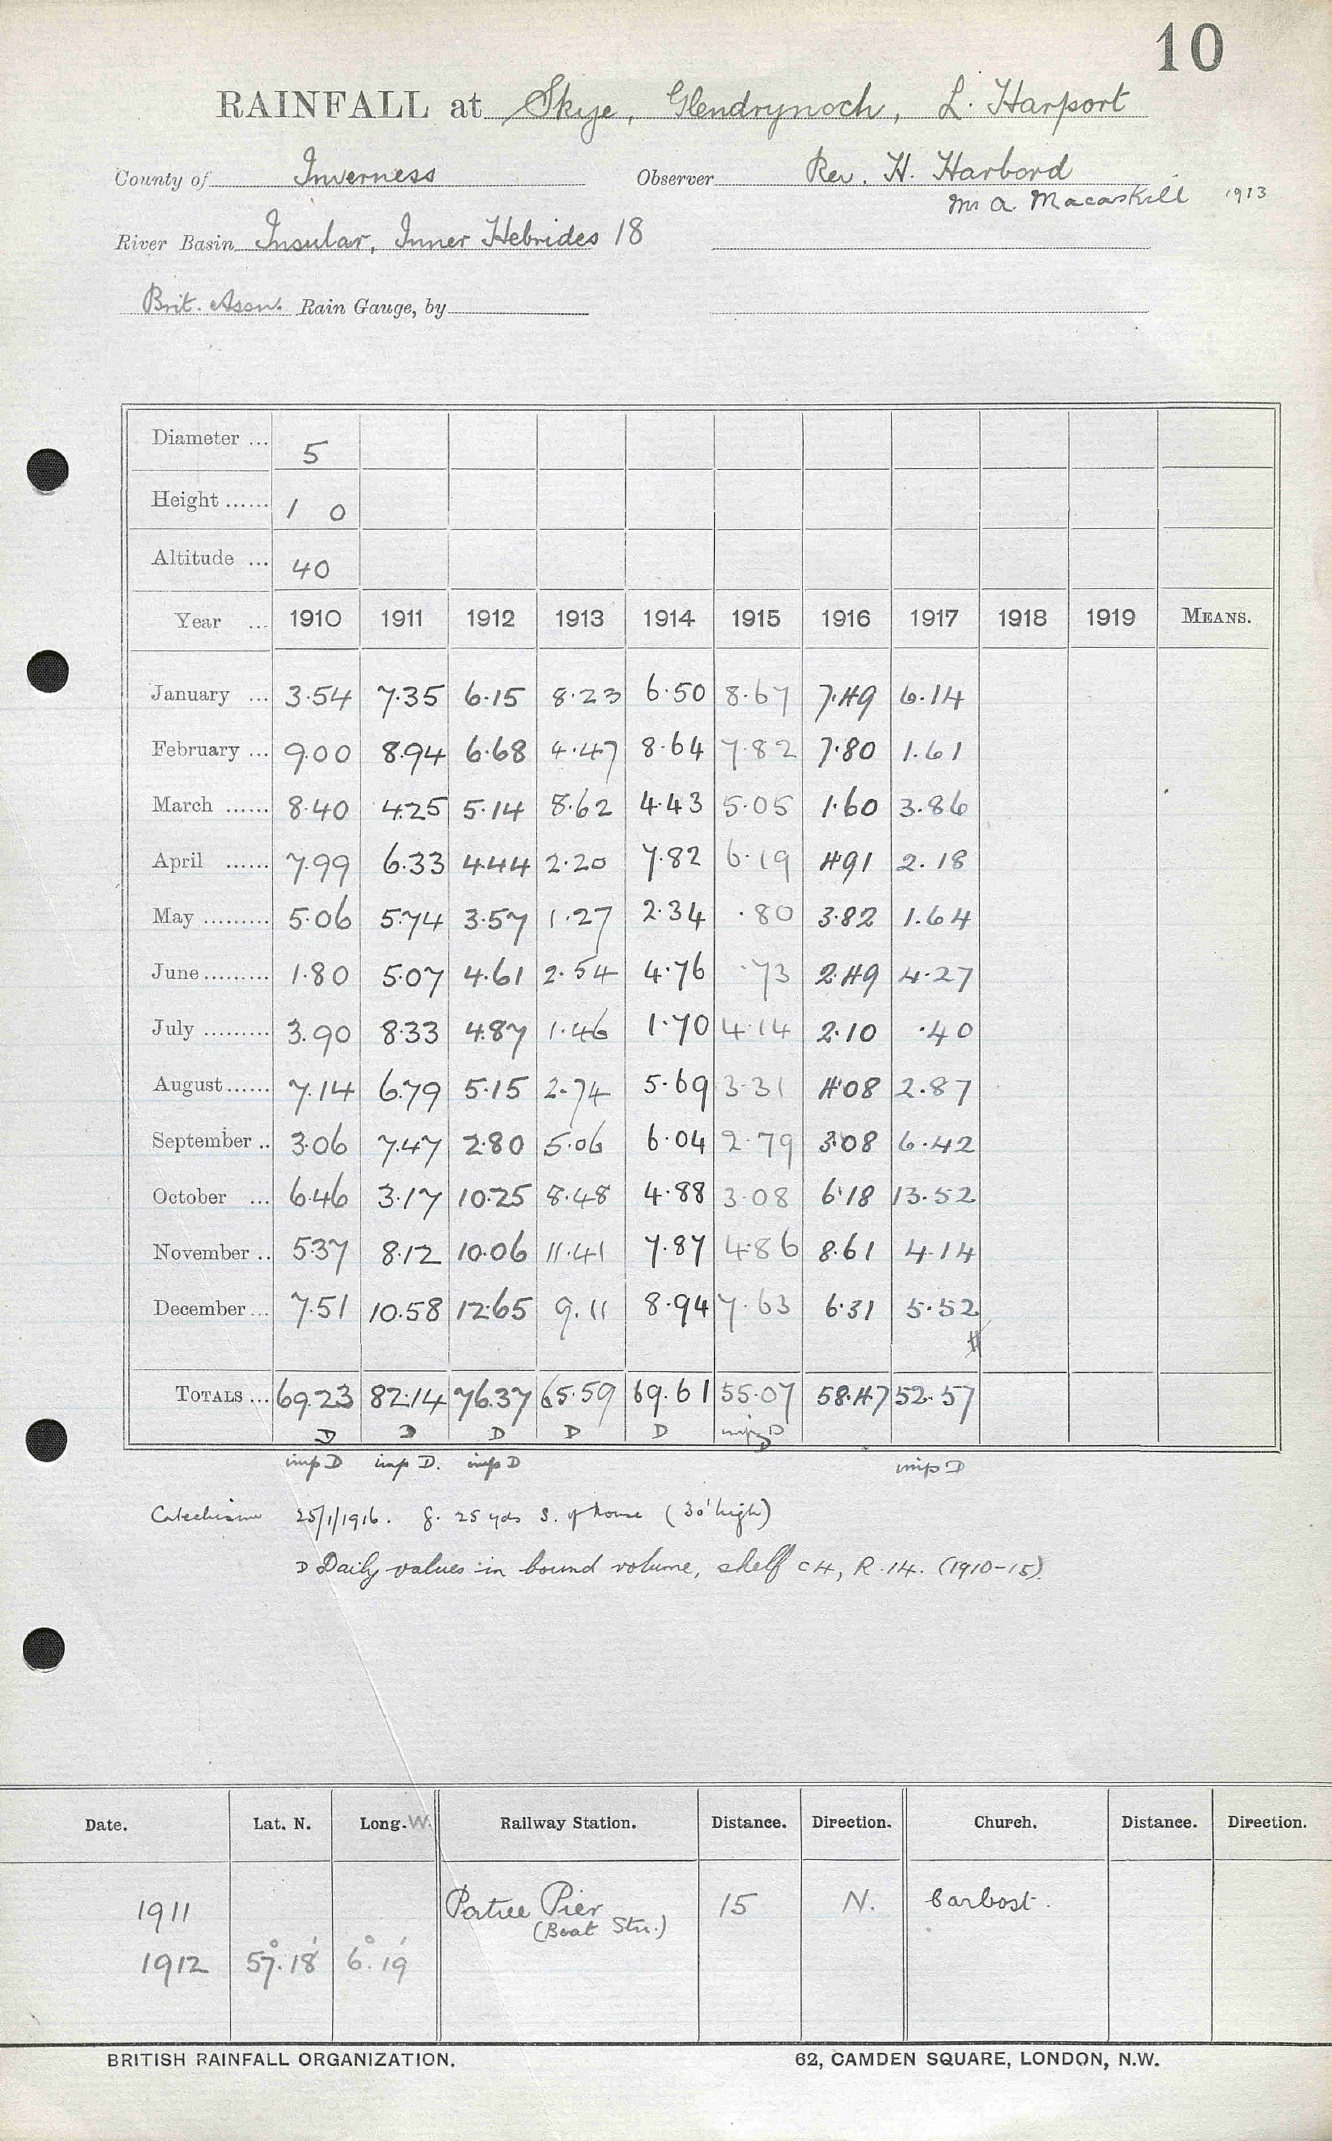 10
RAINFALL at Skye, Glendrynoch, L. Harport
County of Inverness Observer Rev. H. Harbord
Mr A. Macaskill 1913
River Basin Insular, Inner Hebrides 18
Brit. Assn. Rain Gauge, by
Diameter ... 5
Height ...... 1 0
Altitude ... 40
Year ... 1910 1911 1912 1913 1914 1915 1916 1917 1918 1919 MEANS.
January ... 3.54 7.35 6.15 8.23 6.50 8.67 7.49 6.14
February ... 9.00 8.94 6.68 4.47 8.64 7.82 7.80 1.61
March ...... 8.40 4.25 5.14 8.62 4.43 5.05 1.60 3.86
April ...... 7.99 6.33 4.44 2.20 7.82 6.19 4.91 2.18
May ......... 5.06 5.74 3.57 1.27 2.34 .80 3.82 1.64
June ......... 1.80 5.07 4.61 2.54 4.76 .73 2.49 4.27
July ......... 3.90 8.33 4.87 1.46 1.70 4.14 2.10 .40
August ...... 7.14 6.79 5.15 2.74 5.69 3.31 4.08 2.87
September .. 3.06 7.47 2.80 5.06 6.04 2.79 3.08 6.42
October ... 6.46 3.17 10.25 8.48 4.88 3.08 6.18 13.52
November .. 5.37 8.12 10.06 11.41 7.87 4.86 8.61 4.14
December ... 7.51 10.58 12.65 9.11 8.94 7.63 6.31 5.52
TOTALS ... 69.23 82.14 76.37 65.59 69.61 55.07 58.47 52.57
D D D D D imp D
imp D imp D. imp D imp D
Catechism 25/1/1916. g. 25 yds S. of house (30' high)
D Daily values in bound volume, shelf C4, R.14. (1910-15).
Date. Lat. N. Long. W. Railway Station. Distance. Direction. Church. Distance. Direction.
1911 Portree Pier 15 N. Carbost.
(Boat Stn.)
1912 57°.18' 6°.19'
BRITISH RAINFALL ORGANIZATION. 62, CAMDEN SQUARE, LONDON, N.W.